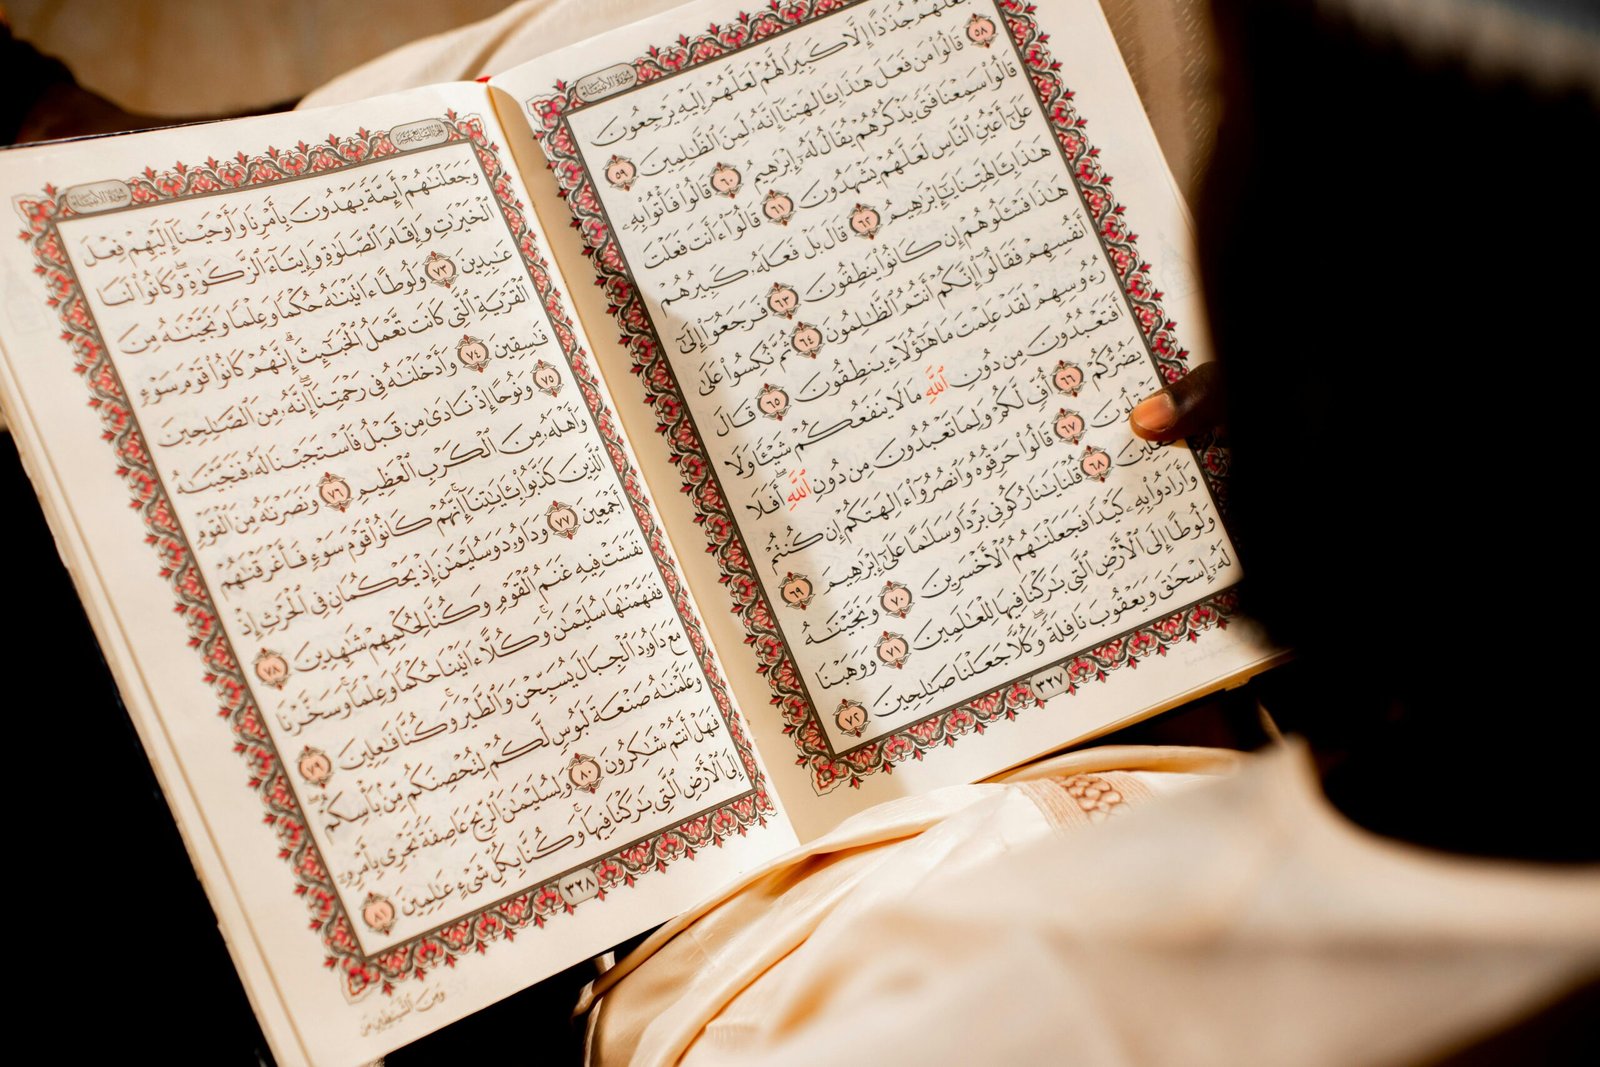 سورة الأنبياء
فَجَعَلَهُمْ جُذَٰذًا إِلَّا كَبِيرًا لَّهُمْ لَعَلَّهُمْ إِلَيْهِ يَرْجِعُونَ
٥٨ قَالُوا۟ مَن فَعَلَ هَٰذَا بِـَٔالِهَتِنَآ إِنَّهُۥ لَمِنَ ٱلظَّٰلِمِينَ ٥٩
قَالُوا۟ سَمِعْنَا فَتًى يَذْكُرُهُمْ يُقَالُ لَهُۥٓ إِبْرَٰهِيمُ ٦٠ قَالُوا۟ فَأْتُوا۟ بِهِۦ
عَلَىٰٓ أَعْيُنِ ٱلنَّاسِ لَعَلَّهُمْ يَشْهَدُونَ ٦١ قَالُوٓا۟ ءَأَنتَ فَعَلْتَ
هَٰذَا بِـَٔالِهَتِنَا يَٰٓإِبْرَٰهِيمُ ٦٢ قَالَ بَلْ فَعَلَهُۥ كَبِيرُهُمْ
هَٰذَا فَسْـَٔلُوهُمْ إِن كَانُوا۟ يَنطِقُونَ ٦٣ فَرَجَعُوٓا۟ إِلَىٰٓ
أَنفُسِهِمْ فَقَالُوٓا۟ إِنَّكُمْ أَنتُمُ ٱلظَّٰلِمُونَ ٦٤ ثُمَّ نُكِسُوا۟ عَلَىٰ
رُءُوسِهِمْ لَقَدْ عَلِمْتَ مَا هَٰٓؤُلَآءِ يَنطِقُونَ ٦٥ قَالَ
أَفَتَعْبُدُونَ مِن دُونِ ٱللَّهِ مَا لَا يَنفَعُكُمْ شَيْـًٔا وَلَا
يَضُرُّكُمْ ٦٦ أُفٍّ لَّكُمْ وَلِمَا تَعْبُدُونَ مِن دُونِ ٱللَّهِ أَفَلَا
٦٧ قَالُوا۟ حَرِّقُوهُ وَٱنصُرُوٓا۟ ءَالِهَتَكُمْ إِن كُنتُمْ
٦٨ قُلْنَا يَٰنَارُ كُونِى بَرْدًا وَسَلَٰمًا عَلَىٰٓ إِبْرَٰهِيمَ ٦٩
وَأَرَادُوا۟ بِهِۦ كَيْدًا فَجَعَلْنَٰهُمُ ٱلْأَخْسَرِينَ ٧٠ وَنَجَّيْنَٰهُ
وَلُوطًا إِلَى ٱلْأَرْضِ ٱلَّتِى بَٰرَكْنَا فِيهَا لِلْعَٰلَمِينَ ٧١ وَوَهَبْنَا
لَهُۥٓ إِسْحَٰقَ وَيَعْقُوبَ نَافِلَةً ۖ وَكُلًّا جَعَلْنَا صَٰلِحِينَ ٧٢
٣٢٧
الجزء السابع عشر
سورة الأنبياء
وَجَعَلْنَٰهُمْ أَئِمَّةً يَهْدُونَ بِأَمْرِنَا وَأَوْحَيْنَآ إِلَيْهِمْ فِعْلَ
ٱلْخَيْرَٰتِ وَإِقَامَ ٱلصَّلَوٰةِ وَإِيتَآءَ ٱلزَّكَوٰةِ ۖ وَكَانُوا۟ لَنَا
عَٰبِدِينَ ٧٣ وَلُوطًا ءَاتَيْنَٰهُ حُكْمًا وَعِلْمًا وَنَجَّيْنَٰهُ مِنَ
ٱلْقَرْيَةِ ٱلَّتِى كَانَت تَّعْمَلُ ٱلْخَبَٰٓئِثَ ۗ إِنَّهُمْ كَانُوا۟ قَوْمَ سَوْءٍ
فَٰسِقِينَ ٧٤ وَأَدْخَلْنَٰهُ فِى رَحْمَتِنَآ ۖ إِنَّهُۥ مِنَ ٱلصَّٰلِحِينَ
٧٥ وَنُوحًا إِذْ نَادَىٰ مِن قَبْلُ فَٱسْتَجَبْنَا لَهُۥ فَنَجَّيْنَٰهُ
وَأَهْلَهُۥ مِنَ ٱلْكَرْبِ ٱلْعَظِيمِ ٧٦ وَنَصَرْنَٰهُ مِنَ ٱلْقَوْمِ
ٱلَّذِينَ كَذَّبُوا۟ بِـَٔايَٰتِنَآ ۚ إِنَّهُمْ كَانُوا۟ قَوْمَ سَوْءٍ فَأَغْرَقْنَٰهُمْ
أَجْمَعِينَ ٧٧ وَدَاوُۥدَ وَسُلَيْمَٰنَ إِذْ يَحْكُمَانِ فِى ٱلْحَرْثِ إِذْ
نَفَشَتْ فِيهِ غَنَمُ ٱلْقَوْمِ وَكُنَّا لِحُكْمِهِمْ شَٰهِدِينَ ٧٨
فَفَهَّمْنَٰهَا سُلَيْمَٰنَ ۚ وَكُلًّا ءَاتَيْنَا حُكْمًا وَعِلْمًا ۚ وَسَخَّرْنَا
مَعَ دَاوُۥدَ ٱلْجِبَالَ يُسَبِّحْنَ وَٱلطَّيْرَ ۚ وَكُنَّا فَٰعِلِينَ ٧٩
وَعَلَّمْنَٰهُ صَنْعَةَ لَبُوسٍ لَّكُمْ لِتُحْصِنَكُم مِّنۢ بَأْسِكُمْ ۖ
فَهَلْ أَنتُمْ شَٰكِرُونَ ٨٠ وَلِسُلَيْمَٰنَ ٱلرِّيحَ عَاصِفَةً تَجْرِى بِأَمْرِهِۦٓ
إِلَى ٱلْأَرْضِ ٱلَّتِى بَٰرَكْنَا فِيهَا ۚ وَكُنَّا بِكُلِّ شَىْءٍ عَٰلِمِينَ ٨١
٣٢٨
وَمِنَ ٱلشَّيَٰطِينِ مَن